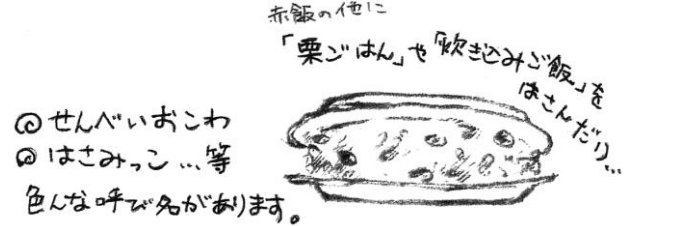 赤飯の他に
「栗ごはん」や「炊き込みご飯」を
はさんだり…
◎せんべいおこわ
◎はさみっこ…等
色んな呼び名があります。